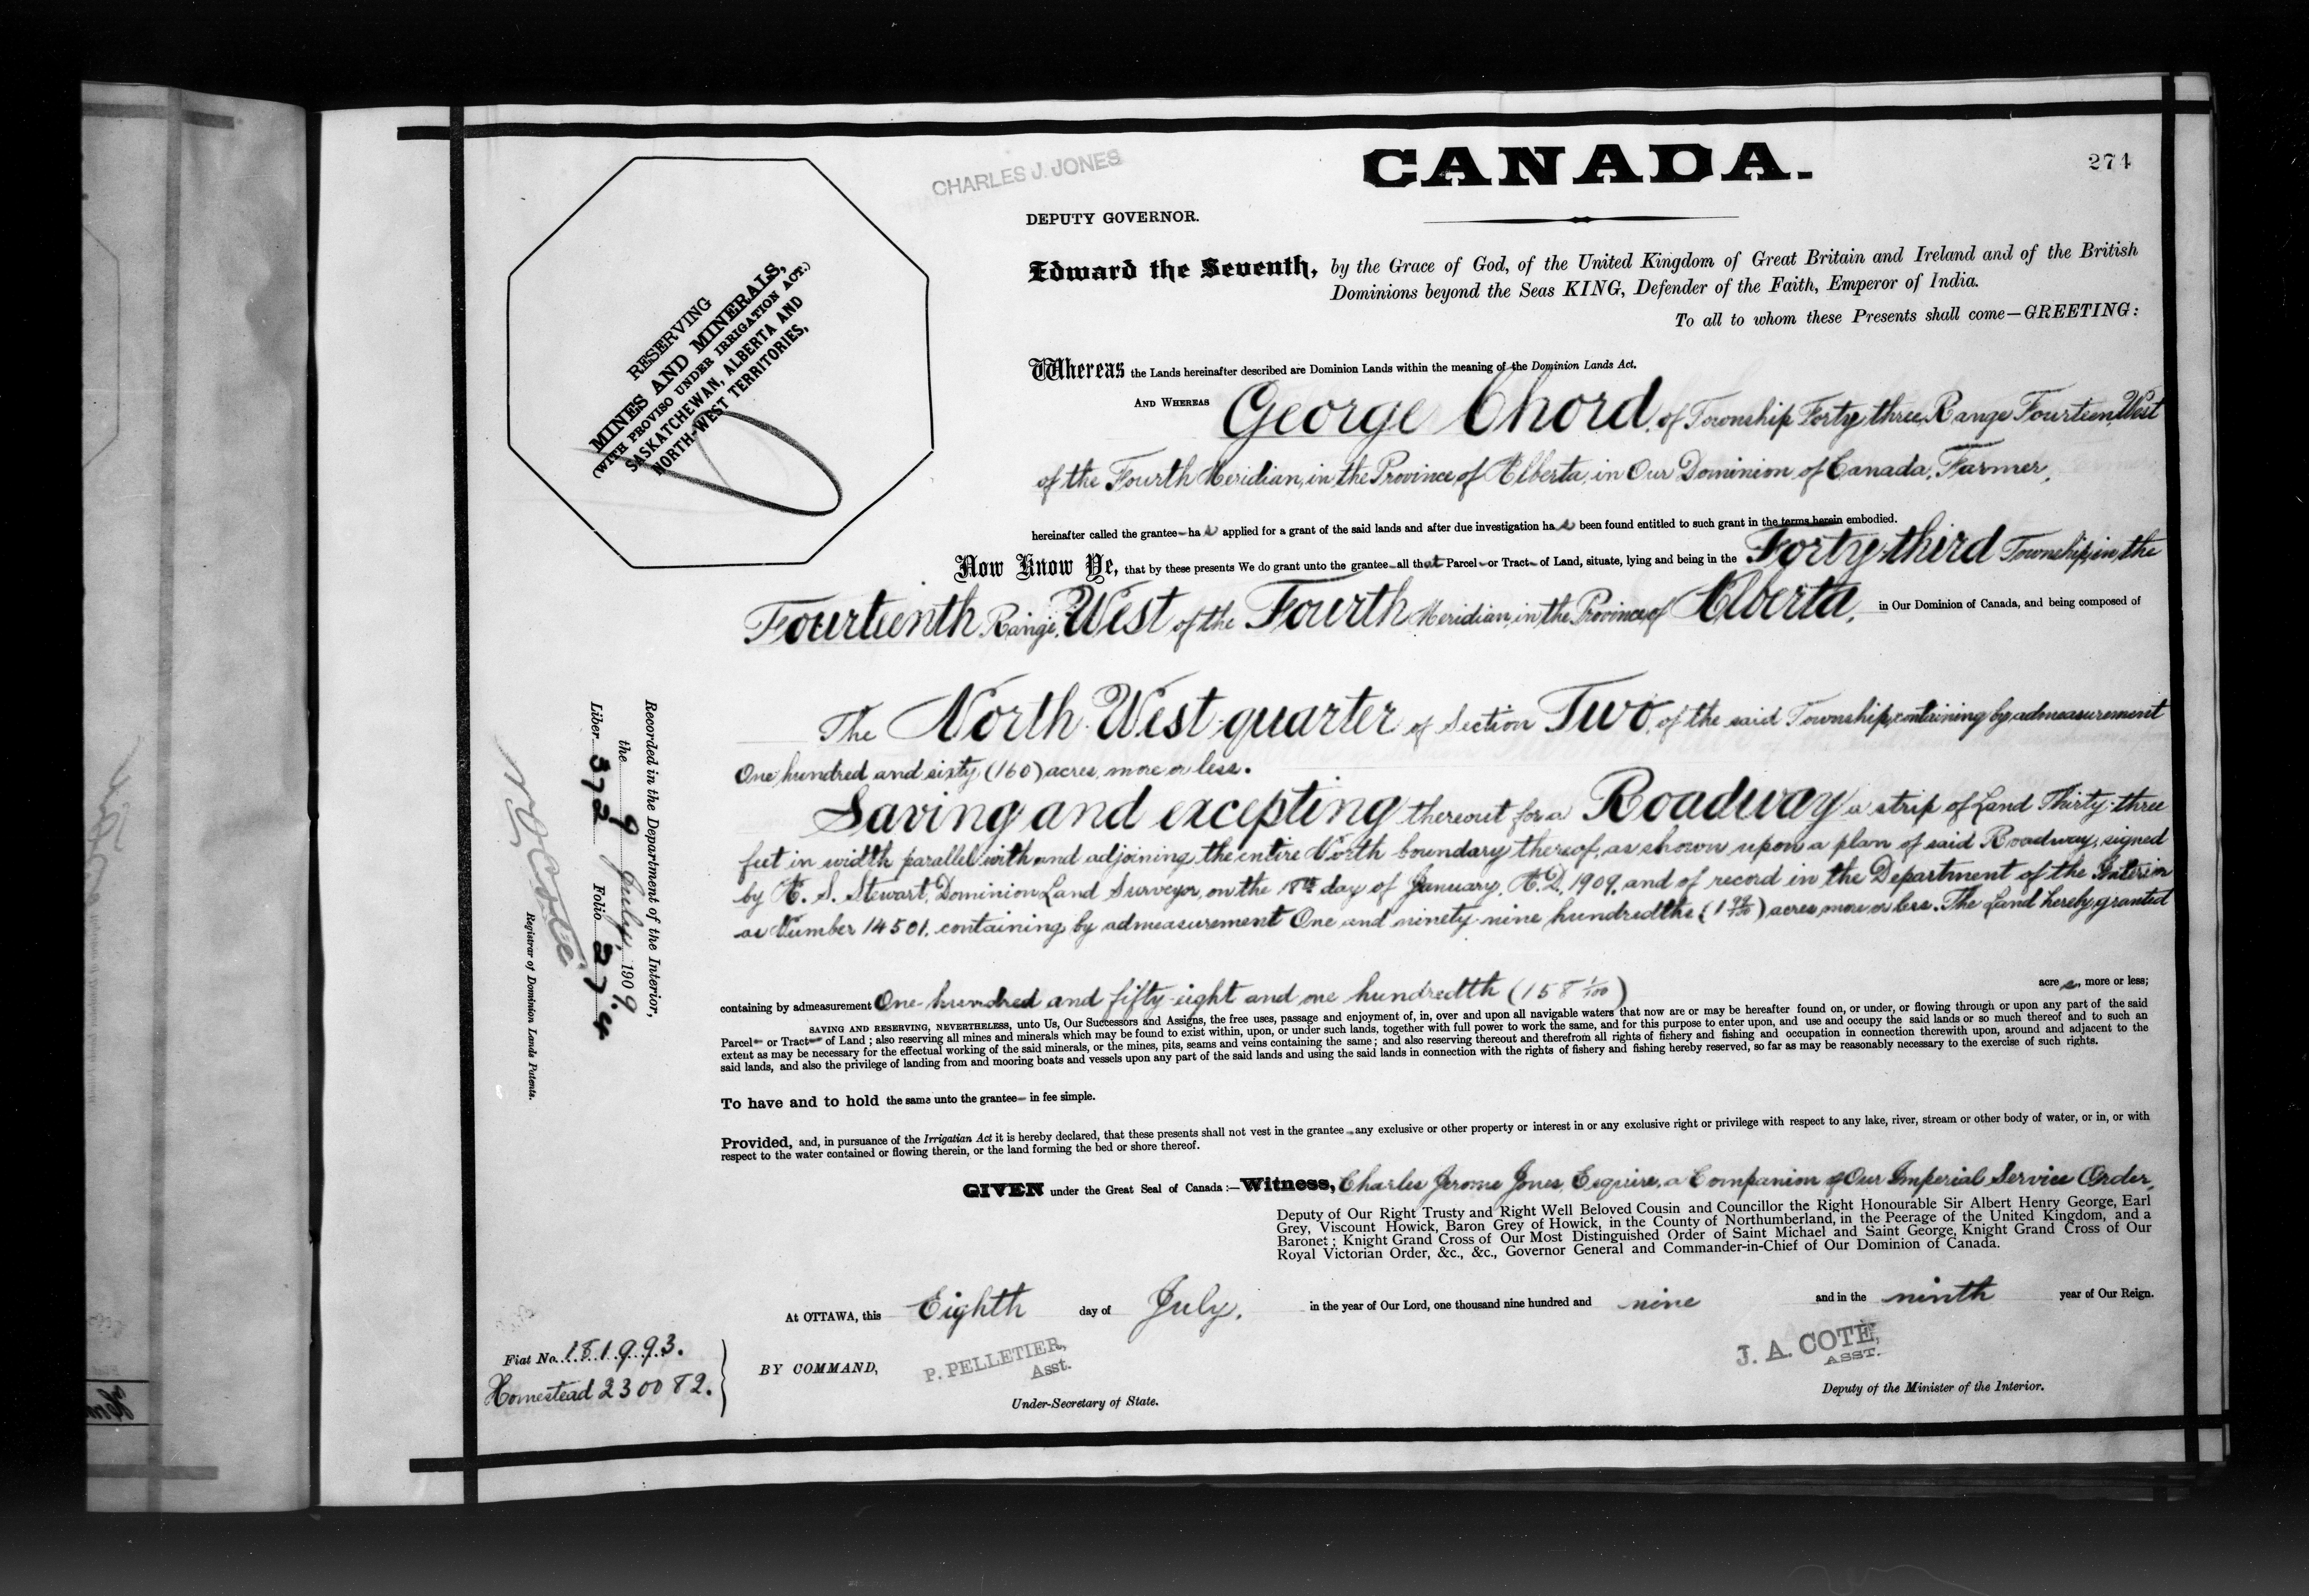 CANADA.
274
CHARLES J. JONES
DEPUTY GOVERNOR.
Edward the Seventh, by the Grace of God, of the United Kingdom of Great Britain and Ireland and of the British
Dominions beyond the Seas KING, Defender of the Faith, Emperor of India.
To all to whom these Presents shall come—GREETING:
RESERVING
MINES AND MINERALS,
(WITH PROVISO UNDER IRRIGATION ACT.)
SASKATCHEWAN, ALBERTA AND
NORTH-WEST TERRITORIES,
Whereas the Lands hereinafter described are Dominion Lands within the meaning of the Dominion Lands Act.
AND WHEREAS George Chord, of Township Forty three, Range Fourteen, West
of the Fourth Meridian, in the Province of Alberta, in Our Dominion of Canada, Farmer,
hereinafter called the grantee— has applied for a grant of the said lands and after due investigation has been found entitled to such grant in the terms herein embodied.
Now Know Ye, that by these presents We do grant unto the grantee—all that Parcel—or Tract— of Land, situate, lying and being in the Forty-third Township, in the
Fourteenth Range, West of the Fourth Meridian, in the Province of Alberta, in Our Dominion of Canada, and being composed of
The North West quarter of Section Two, of the said Township, containing by admeasurement
One hundred and sixty (160) acres, more or less.
Saving and excepting thereout for a Roadway a strip of Land Thirty-three
feet in width parallel with and adjoining the entire North boundary thereof, as shown upon a plan of said Roadway, signed
by A. S. Stewart, Dominion Land Surveyor, on the 18th day of January, A.D. 1909, and of record in the Department of the Interior
as Number 14501, containing by admeasurement One and ninety-nine hundredths (1 99/100) acres more or less. The Land hereby granted
containing by admeasurement One hundred and fifty-eight and one hundredth (158 1/100) acres, more or less;
SAVING AND RESERVING, NEVERTHELESS, unto Us, Our Successors and Assigns, the free uses, passage and enjoyment of, in, over and upon all navigable waters that now are or may be hereafter found on, or under, or flowing through or upon any part of the said
Parcel— or Tract— of Land; also reserving all mines and minerals which may be found to exist within, upon, or under such lands, together with full power to work the same, and for this purpose to enter upon, and use and occupy the said lands or so much thereof and to such an
extent as may be necessary for the effectual working of the said minerals, or the mines, pits, seams and veins containing the same; and also reserving thereout and therefrom all rights of fishery and fishing and occupation in connection therewith upon, around and adjacent to the
said lands, and also the privilege of landing from and mooring boats and vessels upon any part of the said lands and using the said lands in connection with the rights of fishery and fishing hereby reserved, so far as may be reasonably necessary to the exercise of such rights.
To have and to hold the same unto the grantee— in fee simple.
Provided, and, in pursuance of the Irrigation Act it is hereby declared, that these presents shall not vest in the grantee—any exclusive or other property or interest in or any exclusive right or privilege with respect to any lake, river, stream or other body of water, or in, or with
respect to the water contained or flowing therein, or the land forming the bed or shore thereof.
GIVEN under the Great Seal of Canada:—Witness, Charles Jerome Jones, Esquire, a Companion of Our Imperial Service Order,
Deputy of Our Right Trusty and Right Well Beloved Cousin and Councillor the Right Honourable Sir Albert Henry George, Earl
Grey, Viscount Howick, Baron Grey of Howick, in the County of Northumberland, in the Peerage of the United Kingdom, and a
Baronet; Knight Grand Cross of Our Most Distinguished Order of Saint Michael and Saint George, Knight Grand Cross of Our
Royal Victorian Order, &c., &c., Governor General and Commander-in-Chief of Our Dominion of Canada.
At OTTAWA, this Eighth day of July, in the year of Our Lord, one thousand nine hundred and nine and in the ninth year of Our Reign.
BY COMMAND,
P. PELLETIER,
Asst.
Under-Secretary of State.
J. A. COTÉ,
ASST.
Deputy of the Minister of the Interior.
Recorded in the Department of the Interior,
the 9 July, 1909.
Liber 372 Folio 274
N O Coté
Registrar of Dominion Lands Patents.
Fiat No. 181993.
Homestead 230082.